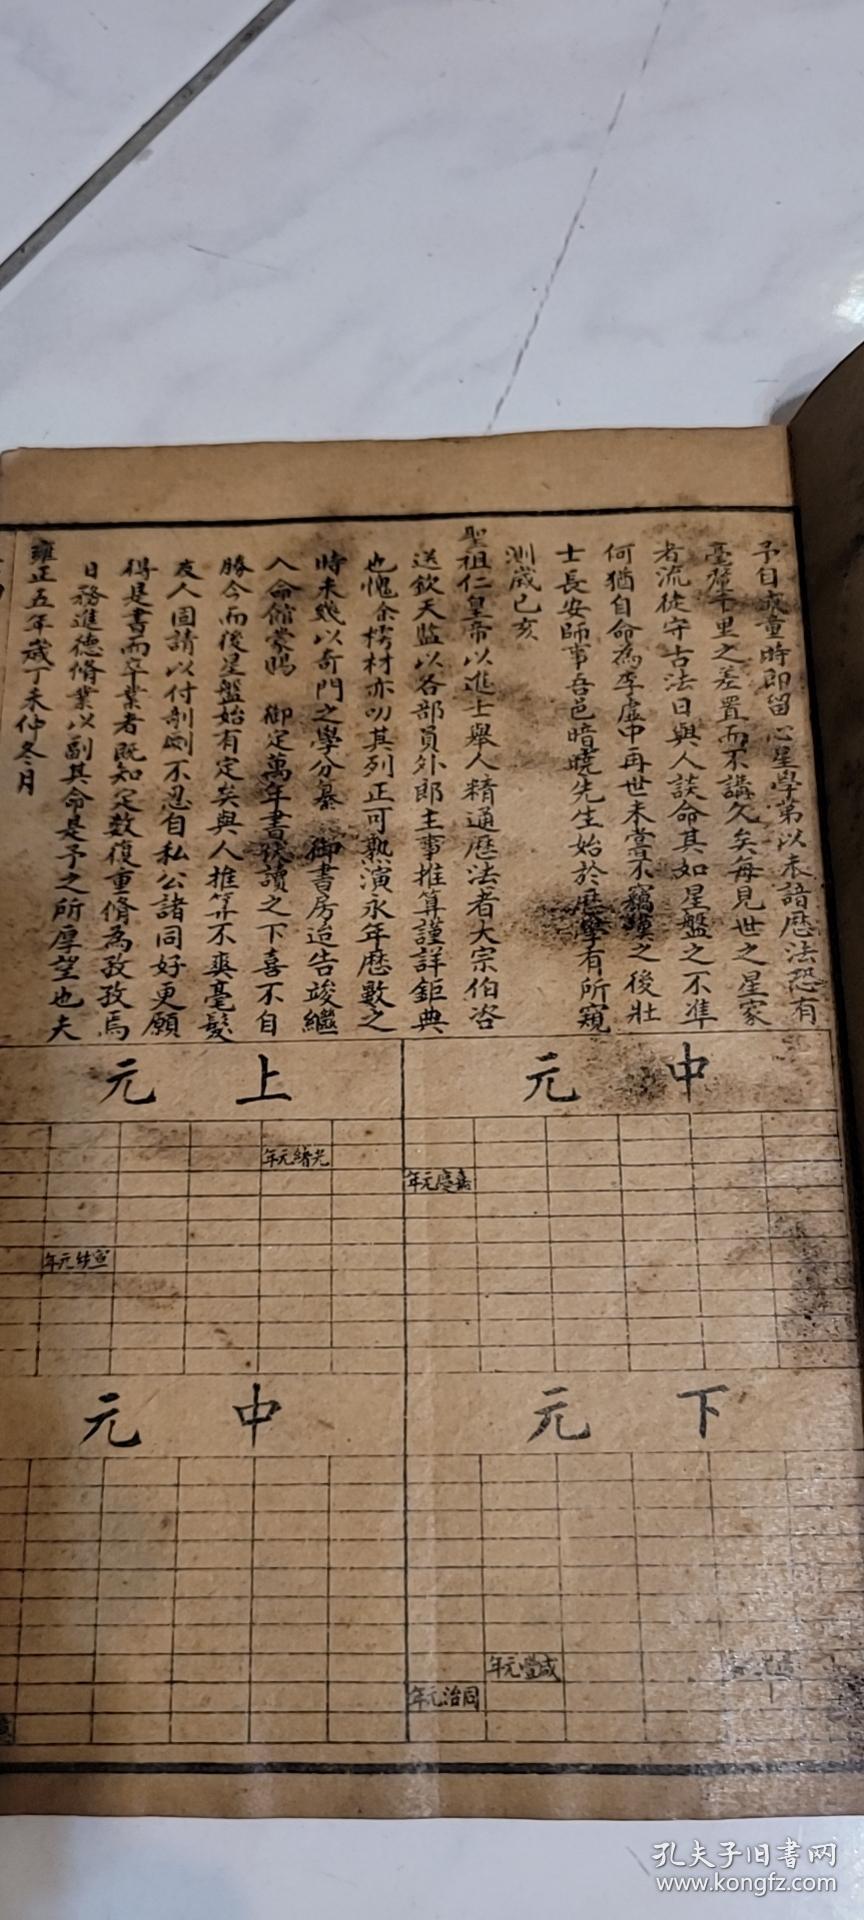 予自成童時即留心星學第以未諳厯法恐有
毫釐千里之差置而不講久矣每見世之星家
者流徒守古法日與人談命其如星盤之不準
何猶自命為李虛中再世未嘗不竊嘆之後壯
士長安師事吾邑暗曉先生始於厯學有所窺
測歲己亥
聖祖仁皇帝以進士舉人精通厯法者大宗伯咨
送欽天監以各部員外郎主事推算謹詳鉅典
也愧余樗材亦叨其列正可熟演永年厯數之
時未幾以奇門之學分纂 御書房迨告竣繼
入命館蒙賜 御定萬年書伏讀之下喜不自
勝今而後星盤始有定矣與人推筭不爽毫髮
友人固請以付剞劂不忍自私公諸同好更願
得是書而卒業者既知定數復重脩為孜孜焉
日務進德脩業以副其命是予之所厚望也夫
雍正五年歲丁未仲冬月
中元
上元
嘉慶元年
光緒元年
宣統元年
下元
中元
咸豐元年
同治元年